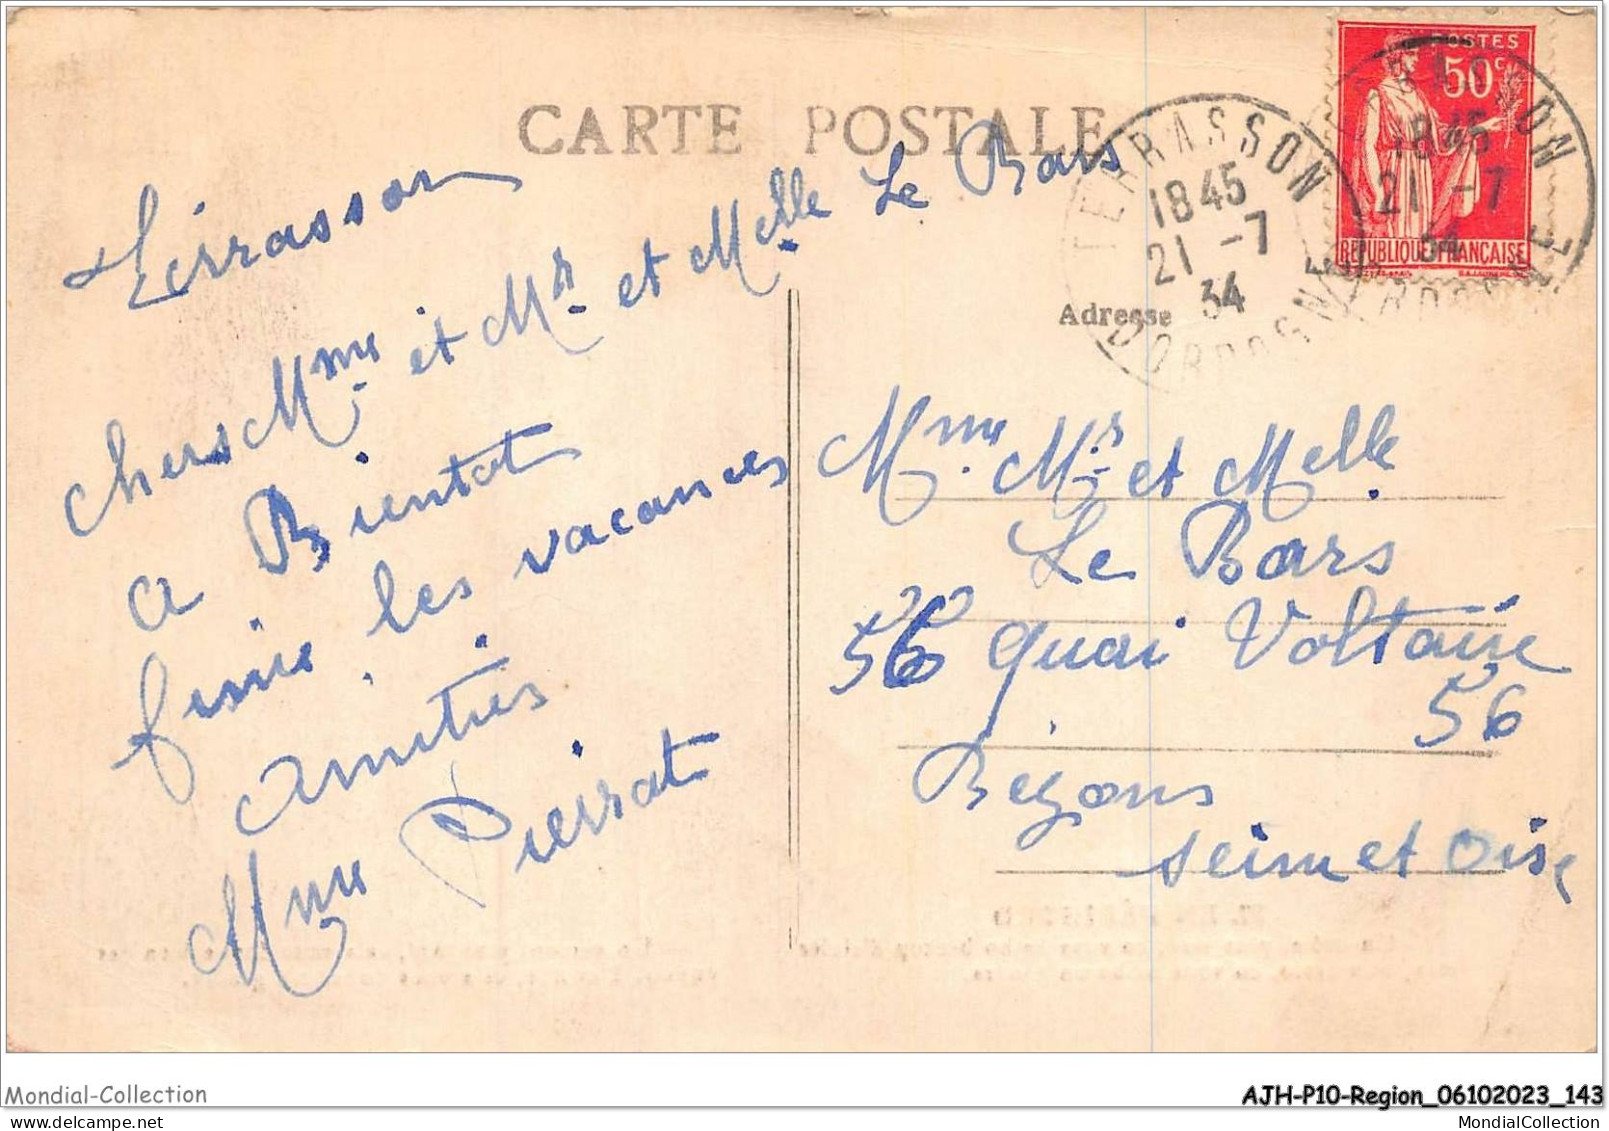 CARTE POSTALE
POSTES
50c
REPUBLIQUE FRANÇAISE
TERRASSON
1845
21 -7
34
DORDOGNE
Adresse
Terrasson
Chers Mme et Mr et Melle Le Bars
a Bientot
finie les vacances
amitiés
Mme Pierrat
Mme Mr et Melle
Le Bars
56 quai Voltaire
56
Bezons
Seine et Oise
Mondial-Collection
AJH-P10-Region_06102023_143
MondialCollection